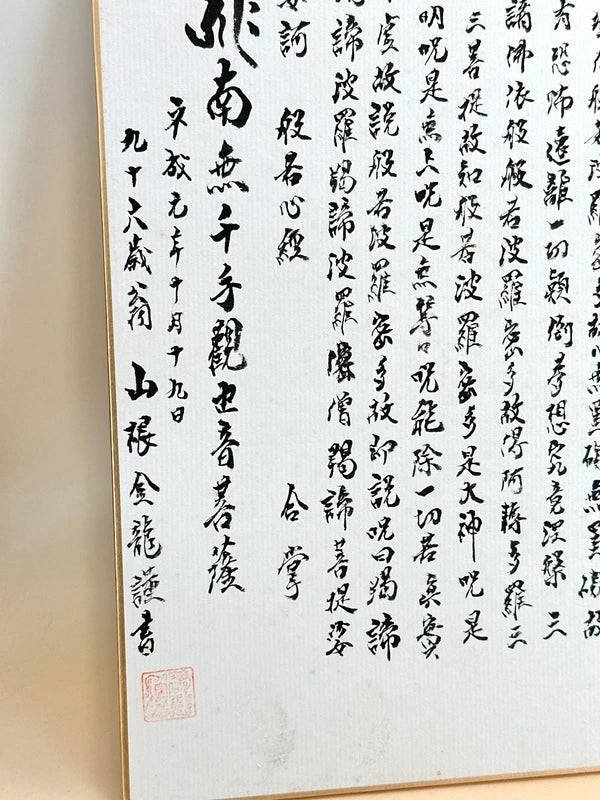 般若波羅蜜多故心無罣礙無罣礙故
有恐怖遠離一切顛倒夢想究竟涅槃三
諸佛依般般若波羅蜜多故得阿耨多羅三
三菩提故知般若波羅蜜多是大神呪是
明呪是無上呪是無等々呪能除一切苦真實
虚故説般若波羅蜜多故即説呪曰羯諦
諦波羅羯諦波羅僧僧羯諦菩提娑
訶 般若心經 合掌
南無千手觀世音菩薩
平成元年十月十九日
九十六歳翁 山根金龍謹書